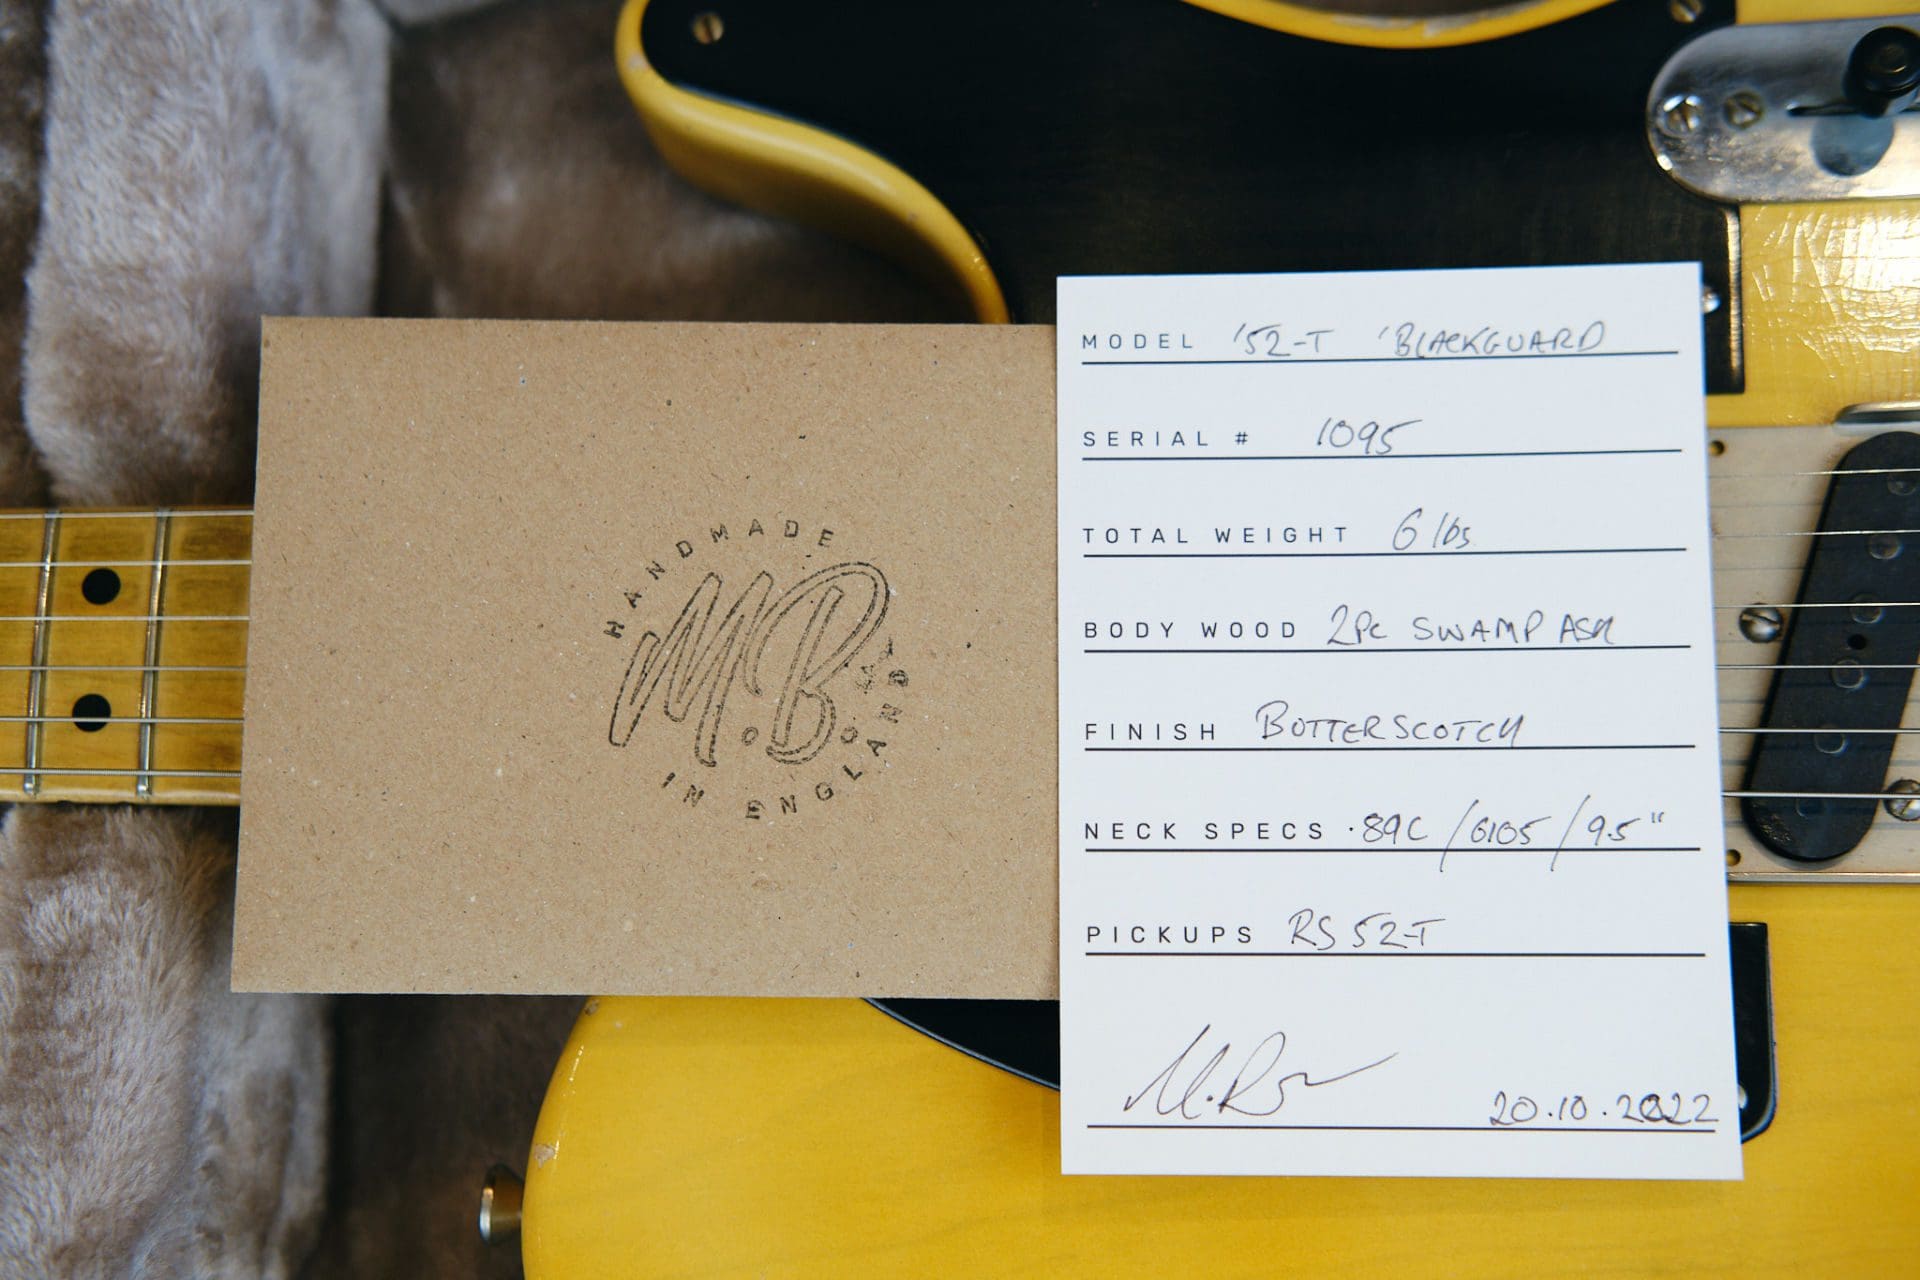 HANDMADE
MB
IN ENGLAND
MODEL '52-T 'BLACKGUARD
SERIAL # 1095
TOTAL WEIGHT 6 lbs
BODY WOOD 2PC SWAMP ASH
FINISH BUTTERSCOTCH
NECK SPECS .89C /6105 /9.5"
PICKUPS RS 52-T
20.10.2022